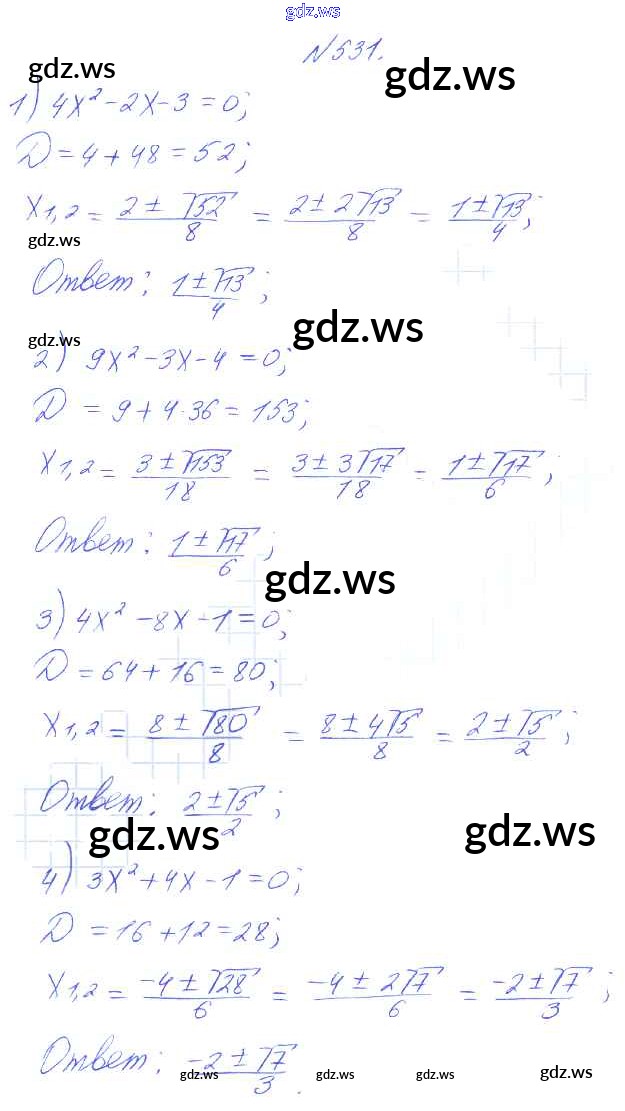 gdz.ws
№531.
gdz.ws gdz.ws
1) 4x² - 2x - 3 = 0;
D = 4 + 48 = 52;
x₁,₂ = (2 ± √52)/8 = (2 ± 2√13)/8 = (1 ± √13)/4;
gdz.ws
Ответ: (1 ± √13)/4;
gdz.ws gdz.ws
2) 9x² - 3x - 4 = 0;
D = 9 + 4·36 = 153;
x₁,₂ = (3 ± √153)/18 = (3 ± 3√17)/18 = (1 ± √17)/6;
Ответ: (1 ± √17)/6;
gdz.ws
3) 4x² - 8x - 1 = 0;
D = 64 + 16 = 80;
x₁,₂ = (8 ± √80)/8 = (8 ± 4√5)/8 = (2 ± √5)/2;
Ответ: (2 ± √5)/2;
gdz.ws gdz.ws
4) 3x² + 4x - 1 = 0;
D = 16 + 12 = 28;
x₁,₂ = (-4 ± √28)/6 = (-4 ± 2√7)/6 = (-2 ± √7)/3;
Ответ: (-2 ± √7)/3.
gdz.ws gdz.ws gdz.ws gdz.ws